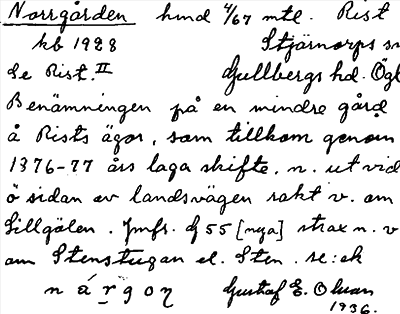 Norrgården hmd 4/67 mtl. Rist
kb 1928 Stjärnorps sn
Se Rist.II Gullbergs hd. Ögl
Benämningen på en mindre gård
å Rists ägor, som tillkom genom
1876-77 års laga skifte, n. ut vid
ö sidan av landsvägen rakt v. om
Lillgölen. Jmfr. G 55 [nya] strax n. v
om Stenstugan el. Sten. se: ek
Gustaf E. Olsson
1936.